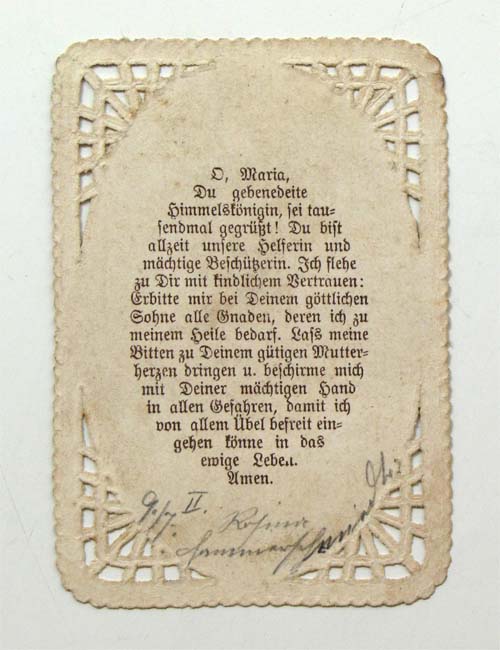 O, Maria,
Du gebenedeite
Himmelskönigin, sei tau-
sendmal gegrüßt! Du bist
allzeit unsere Helferin und
mächtige Beschützerin. Ich flehe
zu Dir mit kindlichem Vertrauen:
Erbitte mir bei Deinem göttlichen
Sohne alle Gnaden, deren ich zu
meinem Heile bedarf. Lass meine
Bitten zu Deinem gütigen Mutter-
herzen dringen u. beschirme mich
mit Deiner mächtigen Hand
in allen Gefahren, damit ich
von allem Übel befreit ein-
gehen könne in das
ewige Leben.
Amen.
II.
Rosina